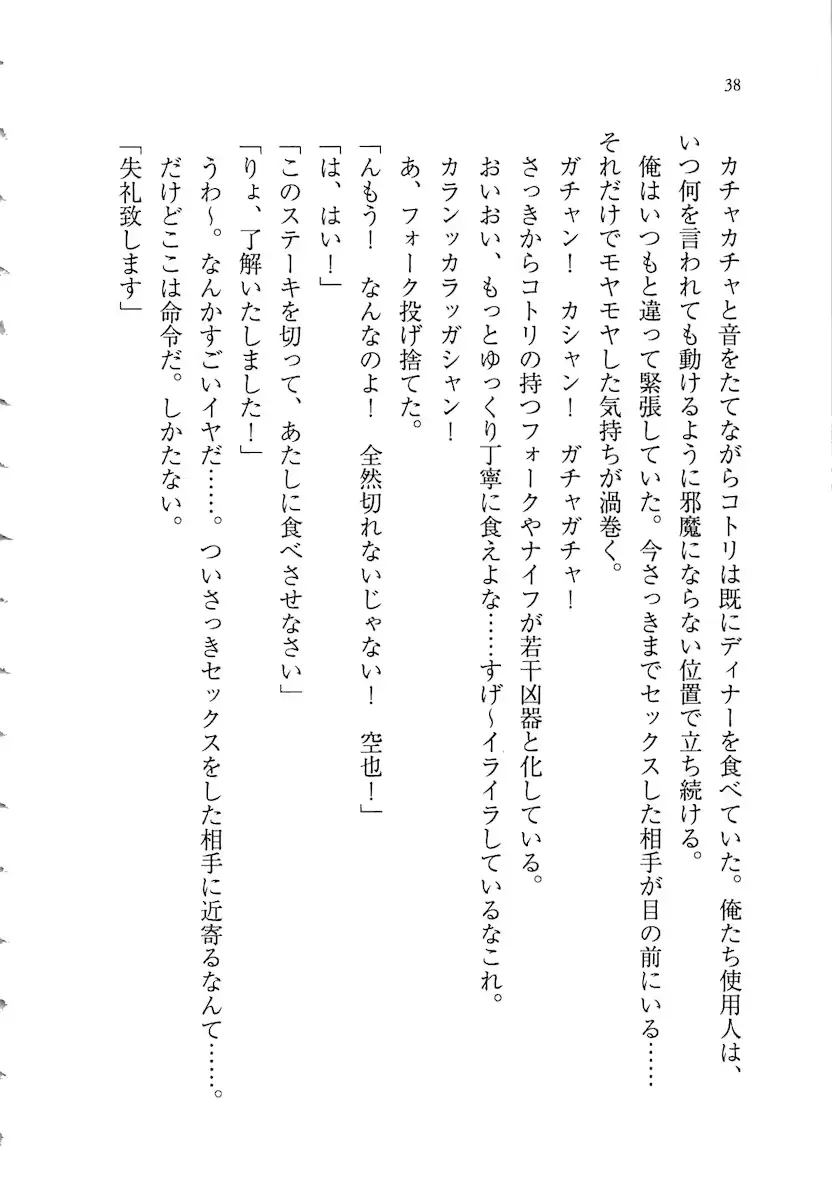 38
カチャカチャと音をたてながらコトリは既にディナーを食べていた。俺たち使用人は、
いつ何を言われても動けるように邪魔にならない位置で立ち続ける。
俺はいつもと違って緊張していた。今さっきまでセックスした相手が目の前にいる……
それだけでモヤモヤした気持ちが渦巻く。
ガチャン！　カシャン！　ガチャガチャ！
さっきからコトリの持つフォークやナイフが若干凶器と化している。
おいおい、もっとゆっくり丁寧に食えよな……すげ～イライラしているなこれ。
カランッカラッガシャン！
あ、フォーク投げ捨てた。
「んもう！　なんなのよ！　全然切れないじゃない！　空也！」
「は、はい！」
「このステーキを切って、あたしに食べさせなさい」
「りょ、了解いたしました！」
うわ～。なんかすごいイヤだ……。ついさっきセックスをした相手に近寄るなんて……。
だけどここは命令だ。しかたない。
「失礼致します」